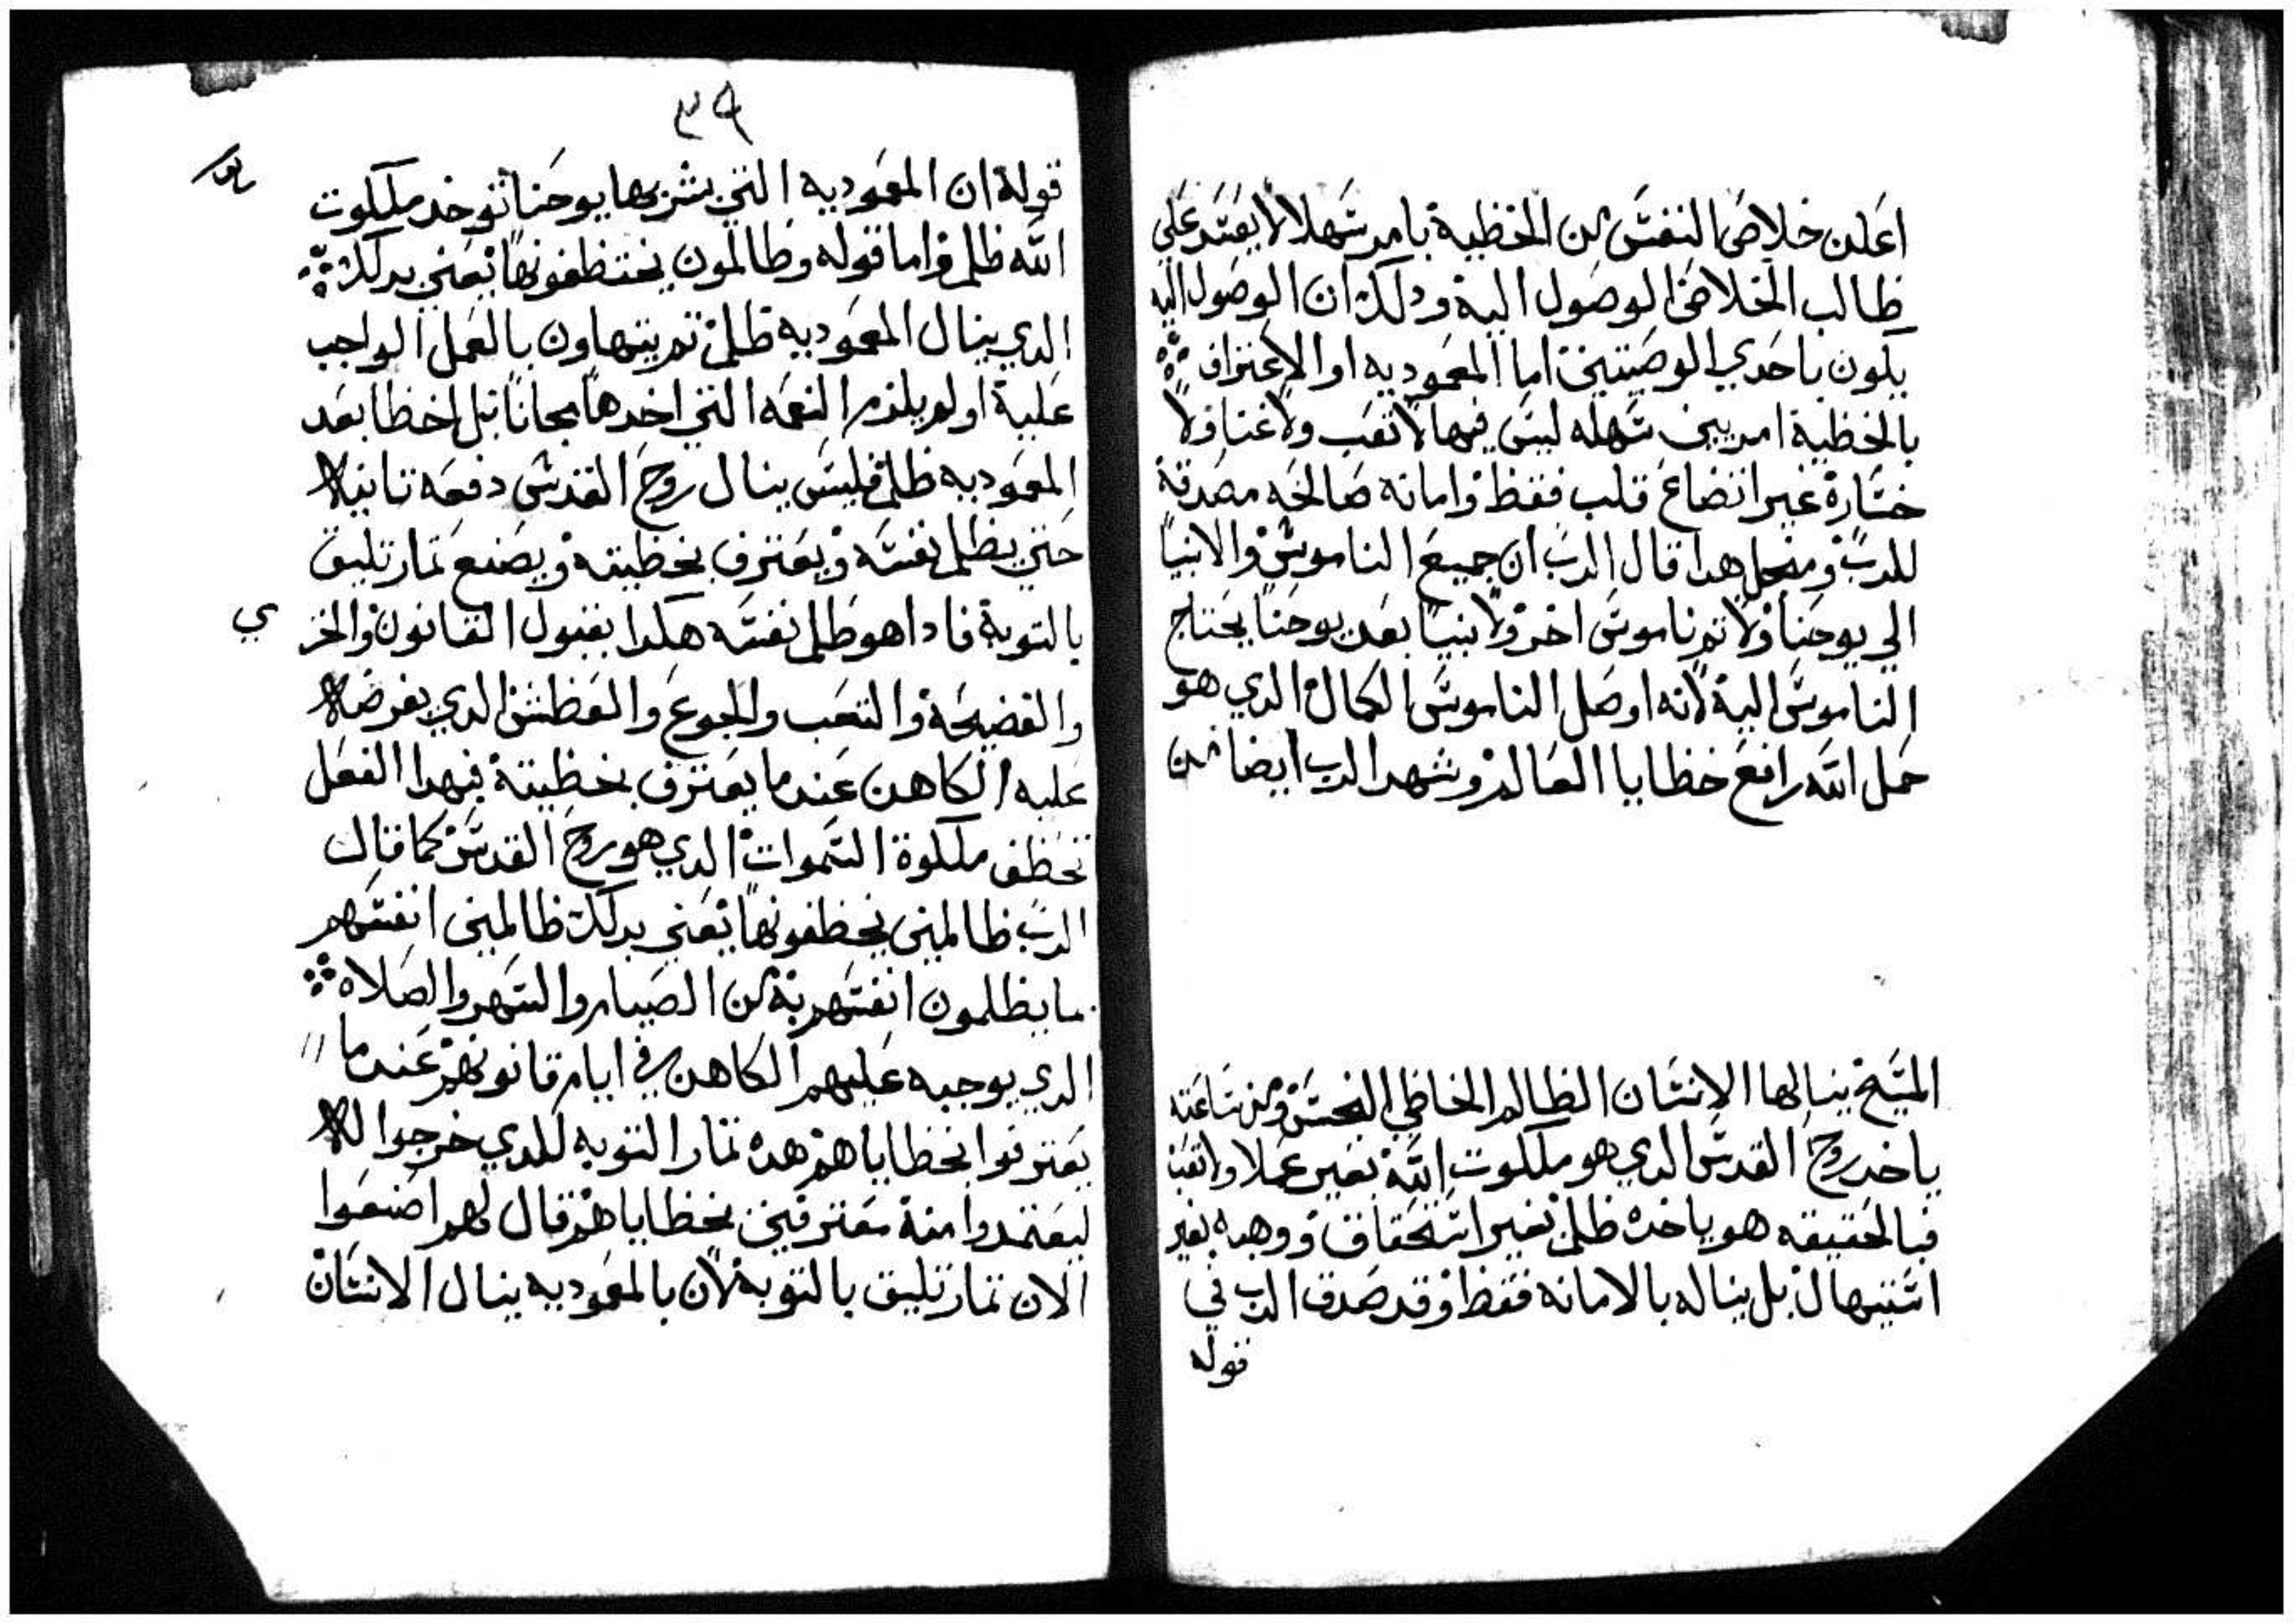 اعلن خلاص النفس من الخظية بامر سهلا لا يعسر علي
ظالب الخلاص الوصول اليه ودلك ان الوصول اليه
يكون باحدي الوصيتين اما المعموديه او الاعتراف
بالخظية امريين سهله ليس فيها لا تعب ولا عنا ولا
خسارة غير اتضاع قلب فقظ وامانه صالحه مصدقة
للرب ومنجل هدا قال الرب ان جميع الناموس والانبيا
الي يوحنا ولا تم ناموس اخر ولا نبيا بعد يوحنا يحتاج
الناموس اليه لانه اوصل الناموس الكمال الدي هو
حمل الله رافع خظايا العالم وشهد الرب ايضا من
المسيح ينالها الانسان الظالم الخاظي النجس ومن ساعته
ياخد روح القدس الدي هو ملكوت الله بغير عملا ولا تعب
فبالحقيقه هو ياخده ظلم بغير استحقاق ووهبه بغير
استيهال بل يناله بالامانه فقظ وقد صدق الرب في
قوله
٣٩
قوله ان المعموديه التي بشر بها يوحنا توخد ملكوت
الله ظلم واما قوله وظالمون يختظفونها يعني بدلك
الدي ينال المعموديه ظلم تم يتهاون بالعمل الواجب
علية او لم يلزم النعمه التي اخدها مجانا بل اخظا بعد
المعموديه ظلم فليس ينال روح القدس دفعه تانيلا
حتي يظلم نفسه ويعترف بخظيته ويصنع تمار تليق
بالتوبة فادا هو ظلم نفسه هكدا بقبول القانون والخزي
والفضيحة والتعب والجوع والعظش الدي يفرضه
عليه الكاهن عندما يعترف بخظيتة فبهدا الفعل
تخظف ملكوة السموات الدي هو روح القدس كما قال
الرب ظالمين يخظفونها يعني بدلك ظالمين انفسهم
ما يظلمون انفسهم بة من الصيام والسهر والصلاه
الدي يوجبه عليهم الكاهن في ايام قانونهم عندما
يعترفوا بخظاياهم هده تمار التوبه للدي خرجوا
ليعتمدوا منة معترفين بخظاياهم قال لهم اصنعوا
الان تمار تليق بالتوبة لان بالمعموديه ينال الانسان